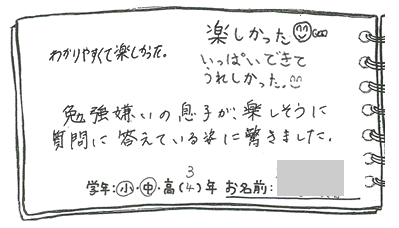 わかりやすくて楽しかった。
楽しかった
いっぱいできて
うれしかった。
勉強嫌いの息子が、楽しそうに
質問に答えている姿に驚きました。
3
学年:小・中・高(4)年 お名前: